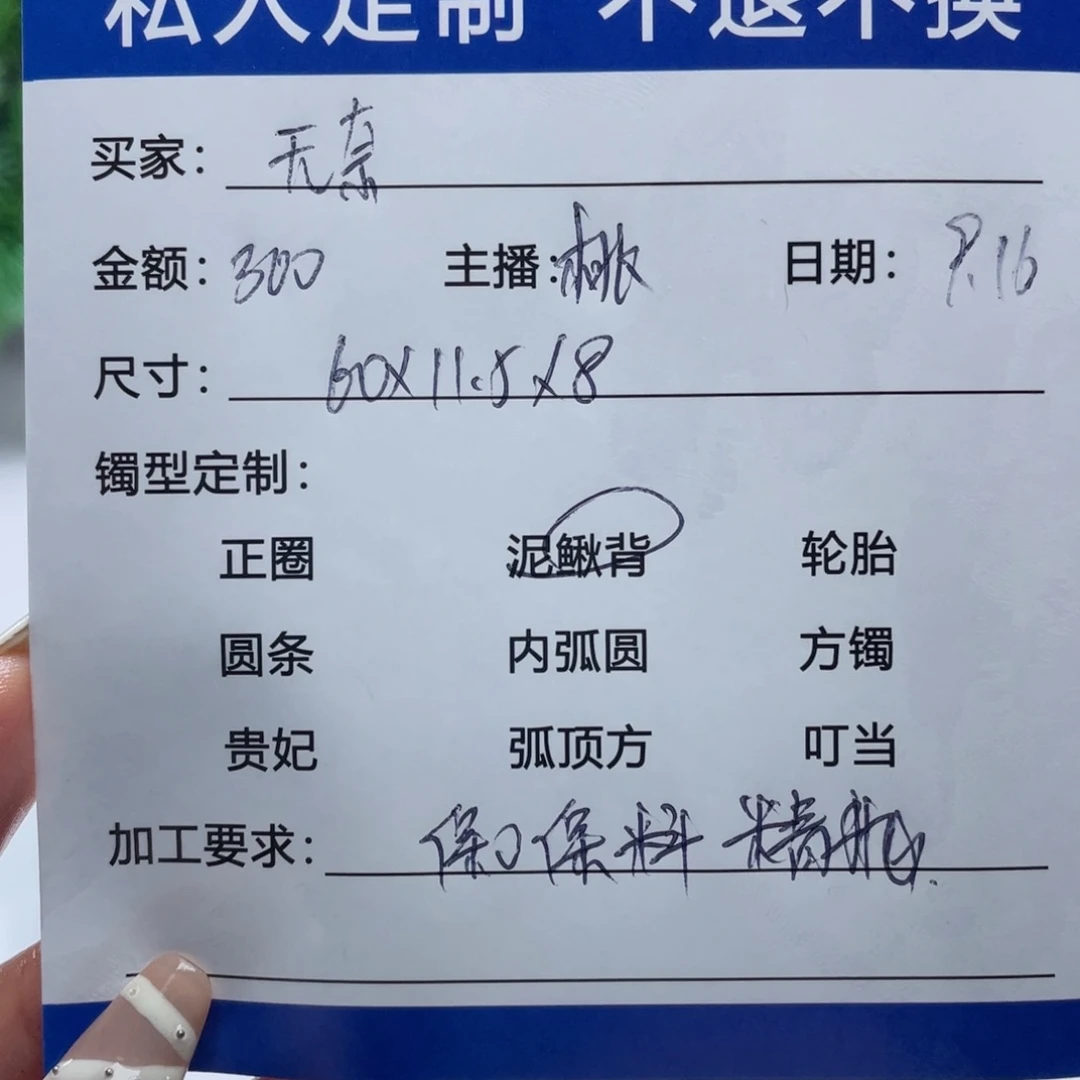 私人定制 不退不换
买家：无奈
金额：300 主播：桃 日期：8.16
尺寸：60×11.5×8
镯型定制：
正圈 泥鳅背 轮胎
圆条 内弧圆 方镯
贵妃 弧顶方 叮当
加工要求：保口保料 精抛.